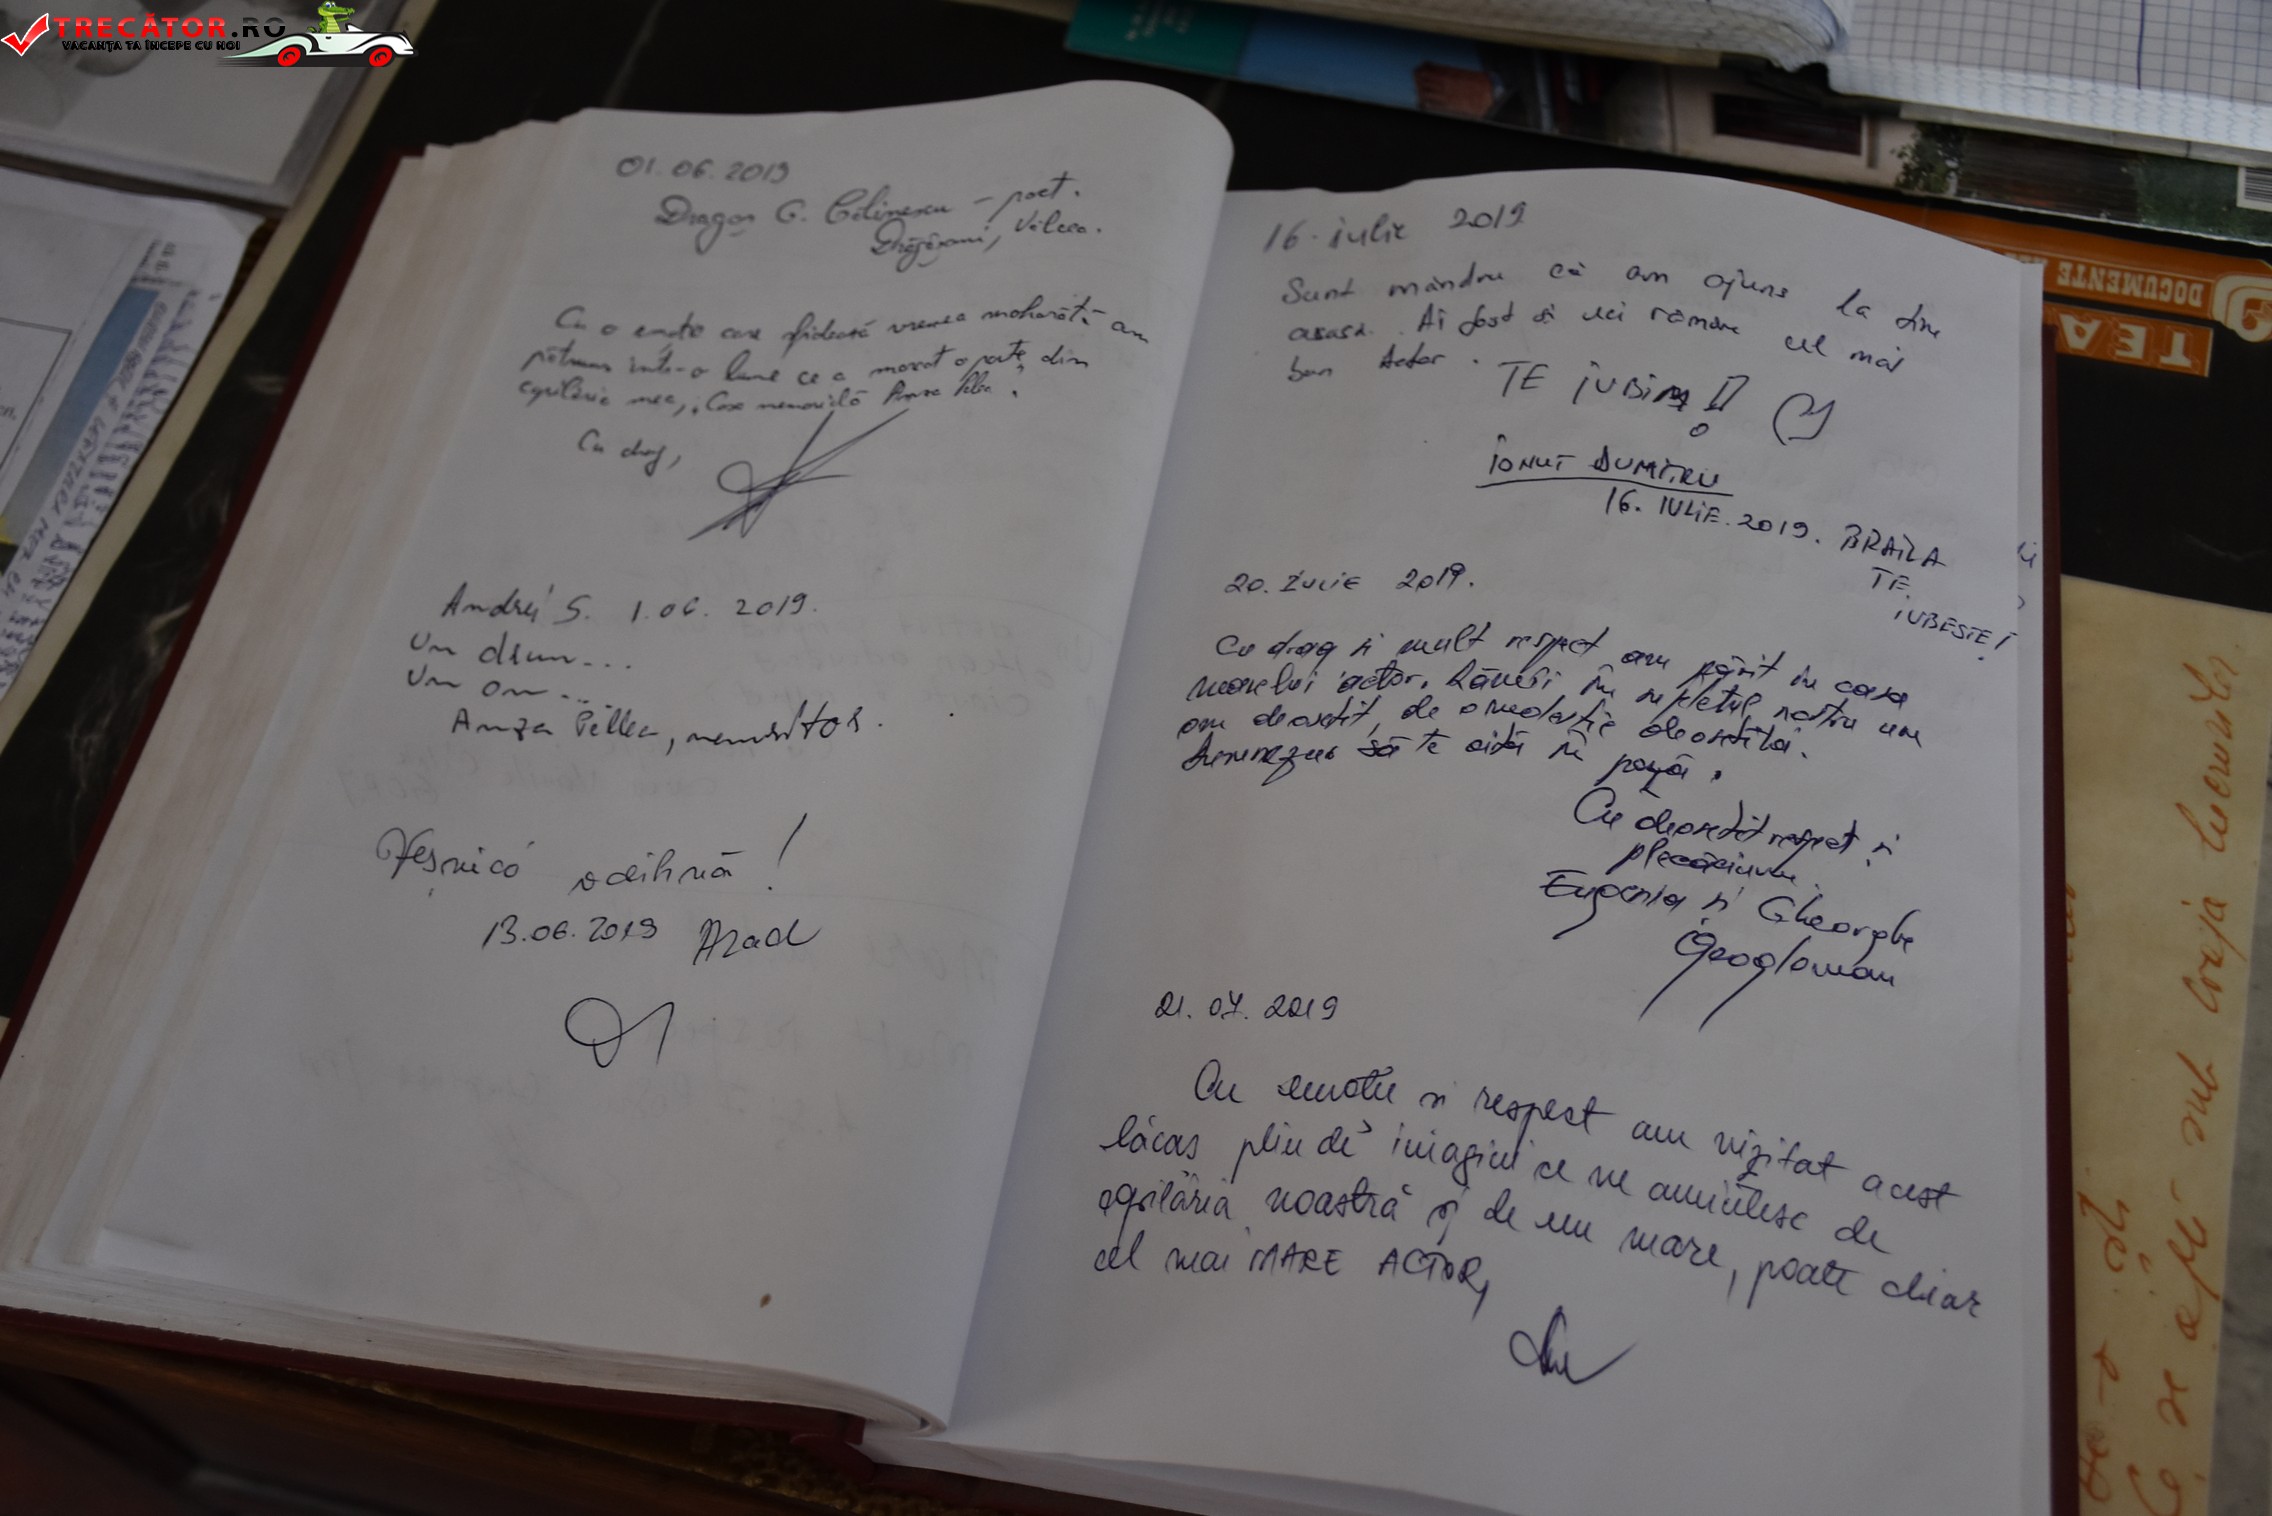 TRECĂTOR.RO
VACANȚA TA ÎNCEPE CU NOI
01.06.2019
Dragoș C. Călinescu – poet.
Drăgășani, Vâlcea.
Cu o emoție care sfidează vremea mohorâtă am
pătruns într-o lume ce a marcat o parte din
copilăria mea, "Casa memorială Amza Pellea".
Cu drag,
Andrei S. 1.06.2019.
Un drum...
Un om...
Amza Pellea, nemuritor.
Veșnică odihnă!
13.06.2019 Arad
16. iulie 2019
Sunt mândru că am ajuns la tine
acasă. Ai fost și vei rămâne cel mai
bun Actor.
TE IUBIM!!
IONUT DUMITRU
16. IULIE. 2019. BRAILA
TE
IUBESTE!
20. Iulie 2019.
Cu drag si mult respect am pășit in casa
marelui actor. Rămâi în sufletul nostru un
om deosebit, de o modestie deosebită.
Dumnezeu să te aibă în pază.
Cu deosebit respect si
plecăciune
Eugenia si Gheorghe
Geogloman
21.07.2019
Cu emotie si respect am vizitat acest
lăcas plin de imagini ce ne amintesc de
copilăria noastră și de un mare, poate chiar
cel mai MARE ACTOR,
DOCUMENTE
TEA
Ce se află sub coaja lucrurilor.